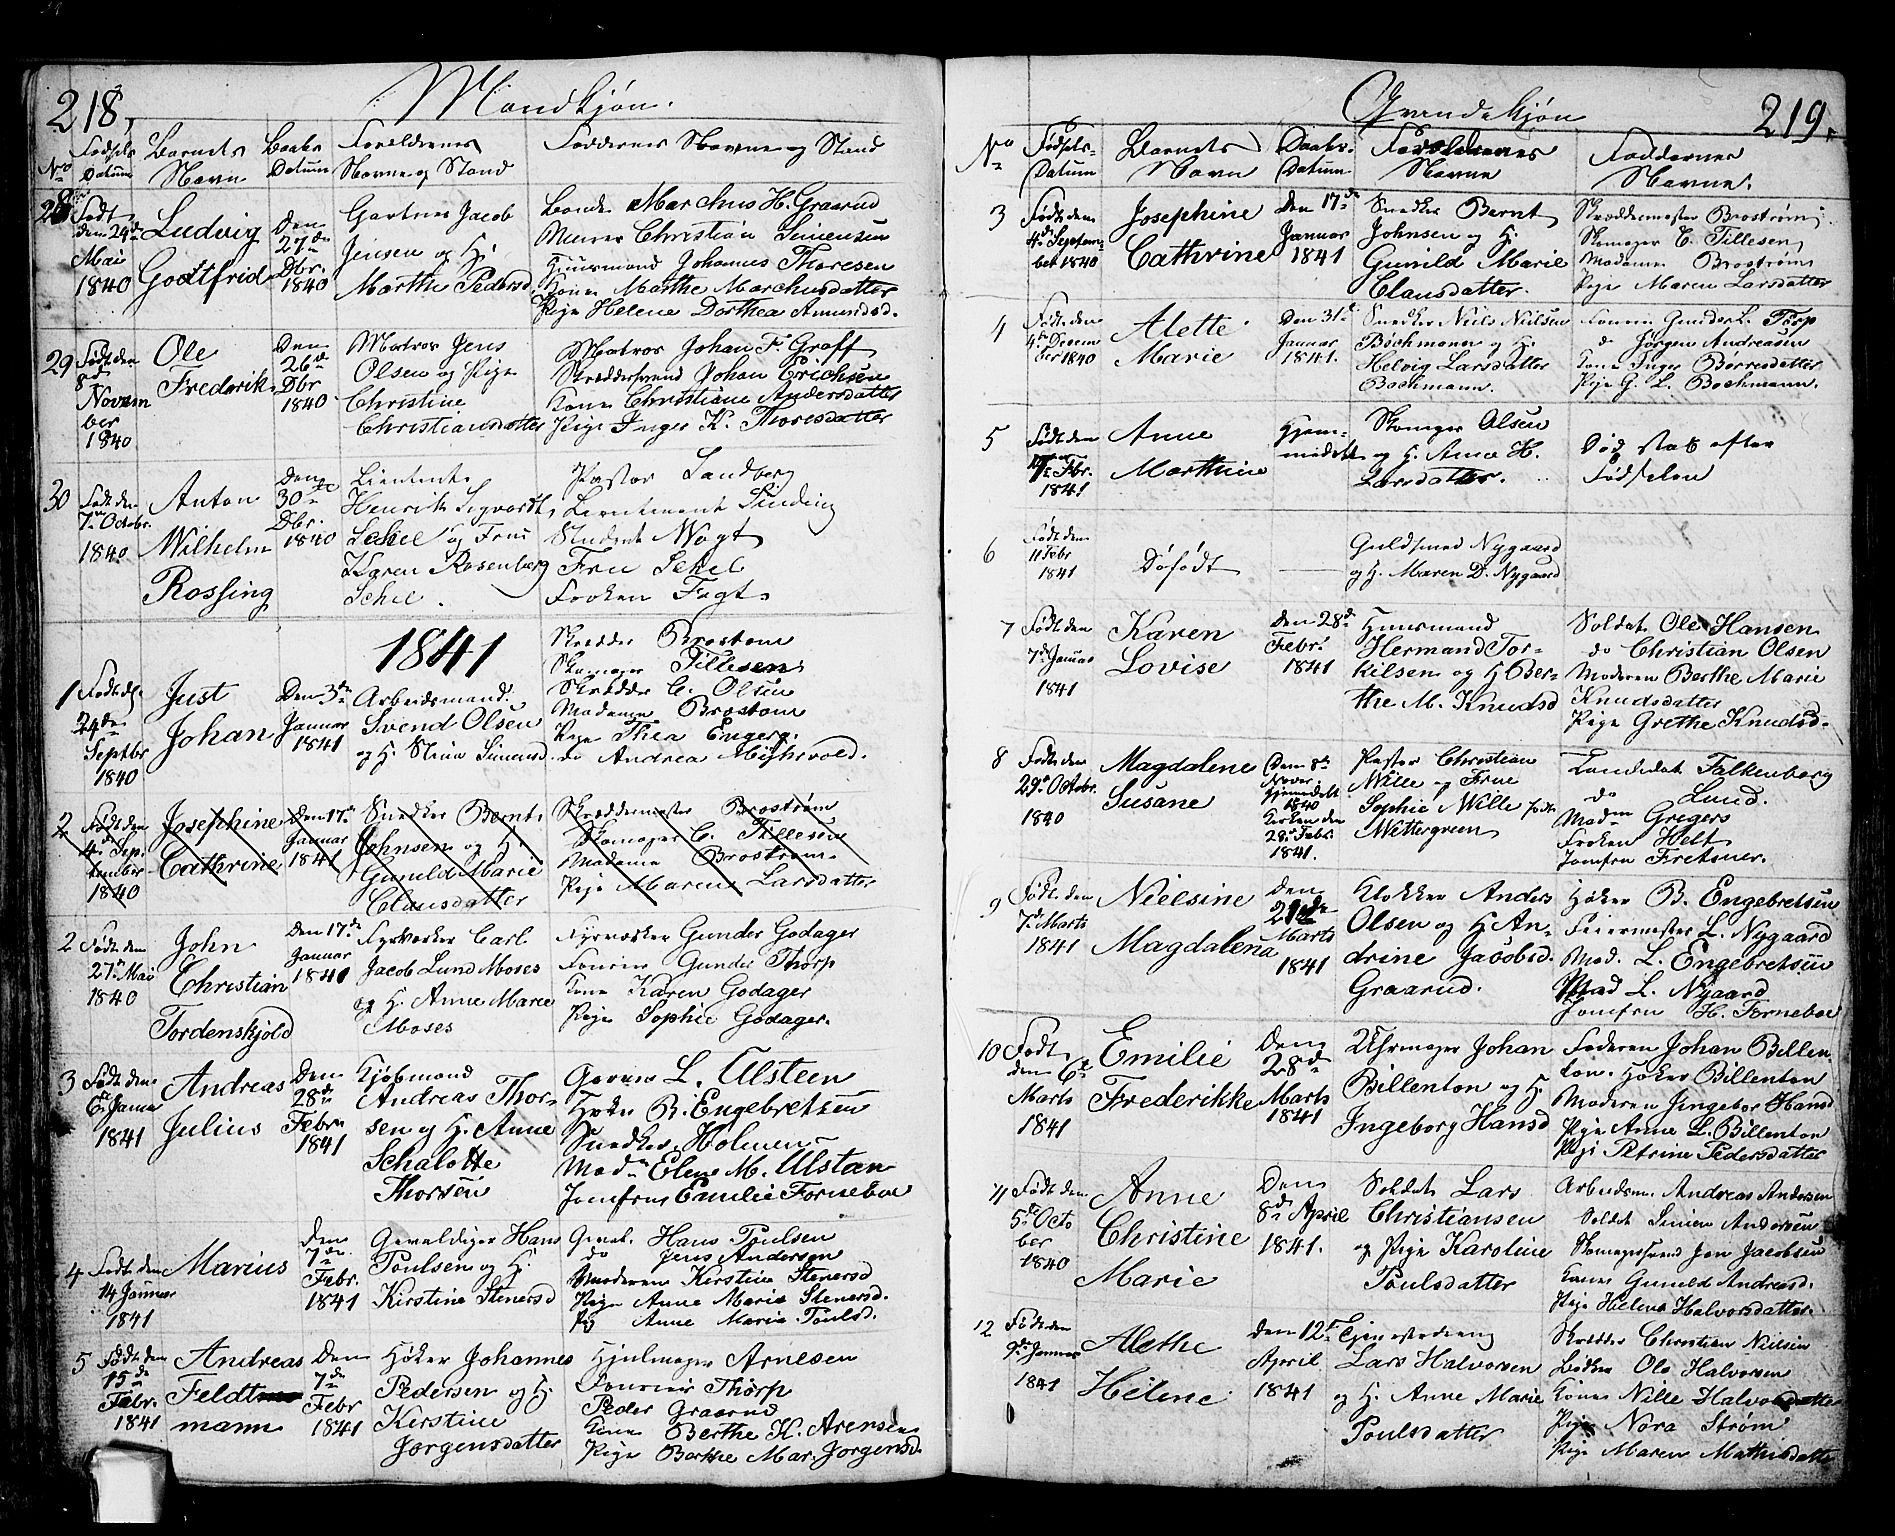 218,
Mandkjøn.
No
Fødsels Datum
Barnets Navn
Daabs Datum
Forældrenes Navne og Stand
Faddernes Navne og Stand
28
Født den 24de Mai 1840
Ludvig Godtfrid
Den 27de Dbr. 1840
Gartner Jacob
Jensen og H.
Marthe Pedersd.
Bonde Marchus H. Graarud
Murer Christian Simensen
Huusmand Johannes Thoresen
Konen Marthe Marchusdatter
Pige Helene Dorthea Amundsd.
29
Født den 8de November 1840
Ole Frederik
Den 26de Dbr 1840
Matros Jens
Olsen og Pige
Christine
Christiansdatter
Matros Johan F. Graff
Skræddersvend Johan Erichsen
Kone Christiane Andersdatter
Pige Inger K. Thoresdatter
30
Født den 7de Octobr. 1840
Anton
Wilhelm
Rossing
Den 30te Dbr. 1840
Lieutenant
Henrik Sigvardt
Schel og Frue
Karen Rosenberg
Schel.
Pastor Sandberg
Lieutenant Sinding
Student Wogt
Frue Schel
Frøken Fogt
1841
1
Født d. 24de Septbr 1840
Just
Johan
Den 3de Januar 1841
Arbeidsmand
Svend Olsen
og H. Stina Simensd.
Skrædder Brostøm
Skomager Tillesen
Skrædder C. Olsen
Madame Brostøm
Pige Thea Engerg.
do Andrea Mÿhrvold.
2
Født den 4de September 1840
Josephine
Cathrine
Den 17de Januar 1841
Snedker Bernt
Johnsen og H.
Gunild Marie
Clausdatter
Skræddermester Brostrøm
Skomager C. Tillesen
Madame Brostrøm
Pige Maren Larsdatter
2
Født den 27de Mai 1840
John
Christian
Tordenskjold
Den 17de Januar 1841
Fyrværker Carl
Jacob Lund Moses
og H. Anne Marie
Moses
Fyrværker Gunder Godager
Fourier Gunder Thorp
Kone Karen Godager
Pige Sophie Godager.
3
Født den 6te Januar 1841
Andreas
Julius
Den 28de Febru 1841
Kjøbmand
Andreas Thor-
sen og H. Anne
Schalotte
Thorsen
L. Ulsteen
Høker B. Engebretsen
Snedker Holmen
Madm Elen M. Ulstan
Jomfrue Emilie Forneboe
4
Født den 14 Januar 1841
Marius
Den 7de Febr. 1841
Gevaldiger Hans
Poulsen og H.
Kirstine Stenersd
Geval. Hans Poulsen
do Jens Andersen
Moderen Kirstine Stenersd
Pige Anne Marie Stenersd.
Pig Anne Maria Poulsd.
5
Født den 15de Febr. 1841
Andreas
Feldt
mann
Den 7de Febr 1841
Høker Johannes
Pedersen og H.
Kirstine
Jørgensdatter
Hjulmager Arnesen
Fourier Thorp
Peder Graarud
Kone Berthe K. Arensen
Pige Berthe Mar. Jorgensd.
219.
Qvindekjøn
No
Fødsels-Datum
Barnets Navn
Daabs-Datum
Forældrenes Navne
Faddernes Navne.
3
Født den 4de September 1840
Josephine
Cathrine
Den 17de Januar 1841
Snedker Bernt
Johnsen og H.
Gunild Marie
Clausdatter.
Skræddermester Brostrøm
Skomager C. Tillesen
Madame Brostrøm
Pige Maren Larsdatter
4
Født den 4de December 1840
Alette
Marie
Den 31te Januar 1841.
Snedker Niels Nielsen
Bochmann og H.
Helvig Larsdatter
Bochmann.
Fourir Gunder L. Torp
do Jørgen Andreasen
Kone Inger Børresdatter
Pige G. L. Bochmann.
5
Født den Febr. 1841
Anne
Marthine
Hjemmedøbt
Skomager Olsen
og H. Anne H.
Larsdatter.
Død stax efter
Fødselen
6
Født den 11 Febr 1841
Døfødt
Guldsmed Nygaard
og H. Maren D. Nygaard
7
Født den 7de Januar 1841
Karen
Lovise
Den 28de Febr. 1841
Huusmand
Hermand Tor-
kilsen og H Ber-
the M. Knudsd
Soldat Ole Hansen
do Christian Olsen
Moderen Berthe Marie
Knudsdatter
Pige Grethe Knudsd.
8
Født den 29de Octobr. 1840
Magdalene
Susane
Den 8de Novbr. hjemmedøbt 1840 Kirken den 28de Febr. 1841.
Pastor Christian
Wille og Frue
Sophie Wille født
Wettergreen
Kandidat Falkenberg
do Lund.
Madmn Gregers
Frøken Helt
Jomfru Fretsner.
9
Født den 7de Marts 1841
Nielsine
Magdalena
Den 21de Marts 1841
Klokker Anders
Olsen og H An-
drine Jacobsd.
Graarud.
Høker B. Engebretsen
Feiermester L. Nygaard
Mad. L. Engebretsen
Mad L. Nygaard
Jomfru H. Forneboe
10
Født den 6te Marts 1841
Emilie
Frederikke
Den 28de Marts 1841
Uhrmager Johan
Billenton og H.
Ingeborg Hansd
Faderen Johan Billen
ton. Høker Billenton
Moderen Jingebor Hansd
Pige Anne L. Billenton
Pige Petrine Pedersdatter
11
Født den 5te October 1840
Anne
Christine
Marie
Den 8de April 1841.
Soldat Lars
Christiansen
og Pige Karoline
Poulsdatter
Arbeidsm. Andreas Andersen
Soldat Simen Andersen
Skomagersvend Jon Jacobsen
Konen Gunild Andreasd.
Pige Helene Halvorsdatter
12
Født den 9de Januar 1841
Alethe
Helene
den 12te April 1841
Tjenestedreng
Lars Halvorsen
og H. Anne Marie
Poulsdatter
Skrædder Christian Nielsen
Bødker Ole Halvorsen
Kone Nille Halvorsdatter
Pige Nora Strøm
Pige Maren Mathisdatter